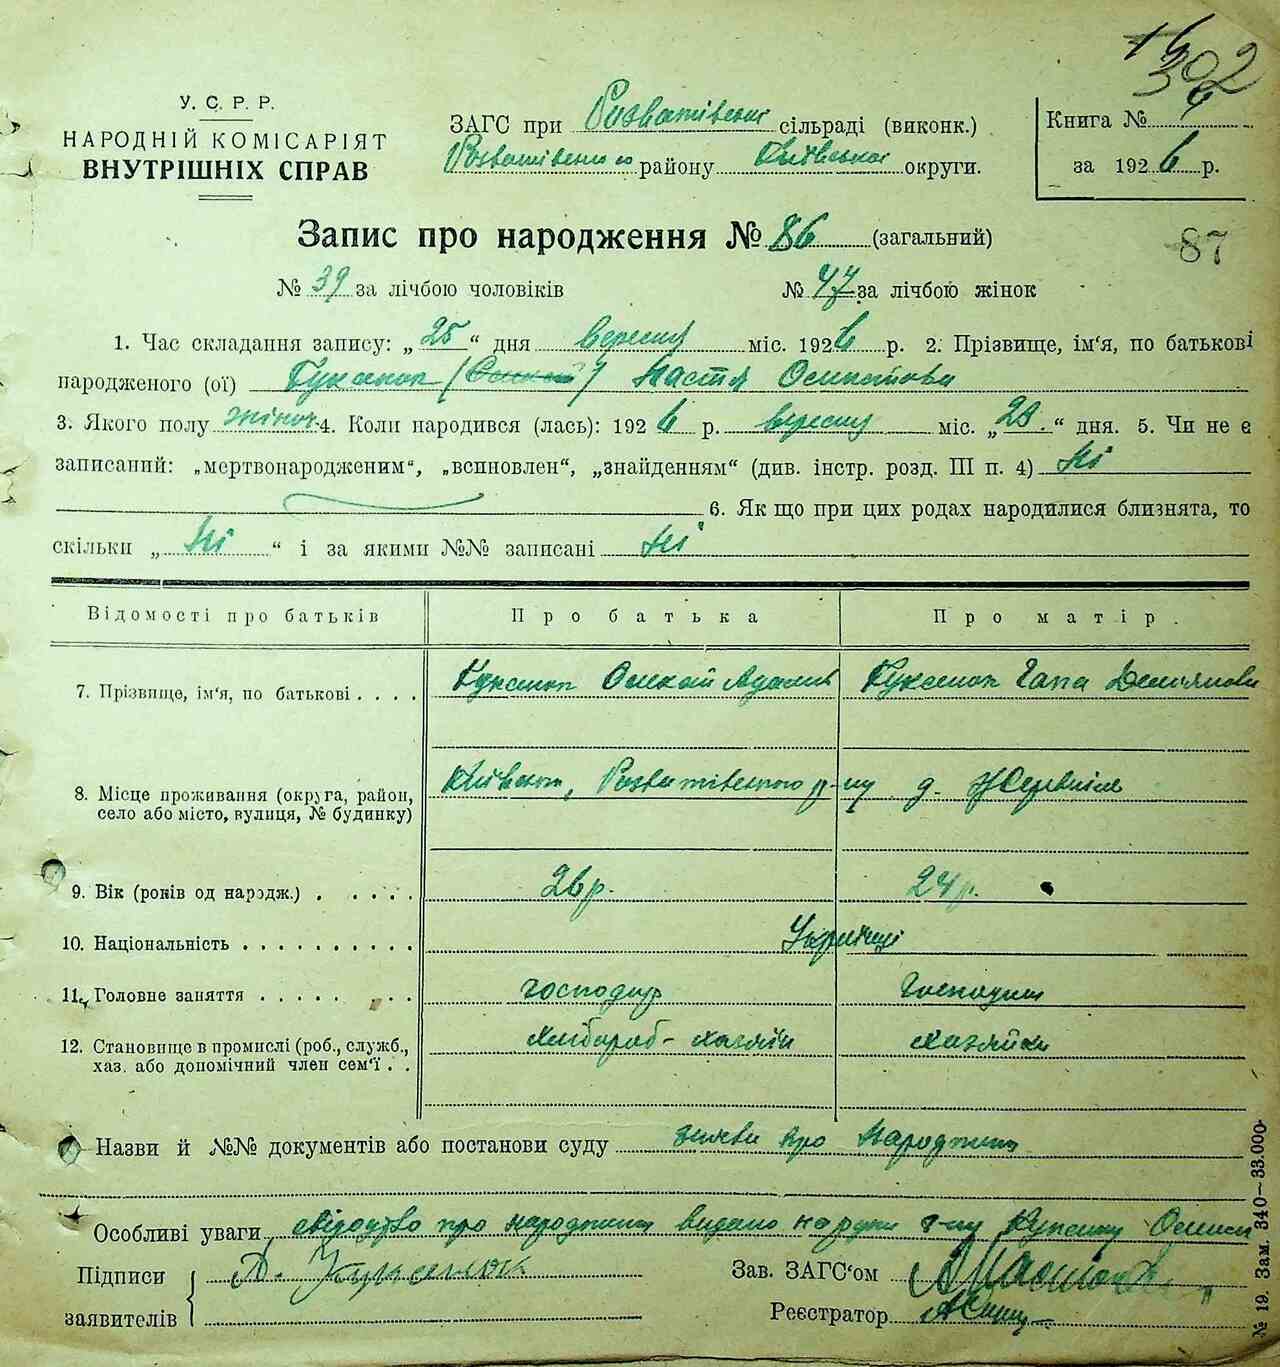 302
У. С. Р. Р.
НАРОДНІЙ КОМІСАРІЯТ
ВНУТРІШНІХ СПРАВ
ЗАГС при Розватівські сільраді (виконк.)
Розватівського району Київської округи.
Книга №
за 1926 р.
Запис про народження № 86 (загальний)
87
№ 39 за лічбою чоловіків № 47 за лічбою жінок
1. Час складання запису: „25“ дня вересня міс. 1926 р. 2. Прізвище, ім'я, по батькові
народженого (ої) Куксенок Настя Осипова
3. Якого полу жіноч. 4. Коли народився (лась): 1926 р. вересня міс. „23.“ дня. 5. Чи не є
записаний: „мертвонародженим“, „всиновлен“, „знайденням“ (див. інстр. розд. III п. 4) Ні
6. Як що при цих родах народилися близнята, то
скільки „Ні“ і за якими №№ записані Ні
Відомості про батьків Про батька Про матір.
7. Прізвище, ім'я, по батькові . . . . Куксенок Адамів Куксенок Гапа Демянова
8. Місце проживання (округа, район, село або місто, вулиця, № будинку) Київськ, Розватівського р-ну д.
9. Вік (років од народж.) . . . . . 26 р. 24 р.
10. Національність . . . . . . . . . . Українці
11. Головне заняття . . . . . . . господар Господиня
12. Становище в промислі (роб., служб., хаз. або допомічний член сем'ї . . хлібороб - хазяїн хазяйка
Назви й №№ документів або постанови суду заява про народження
Особливі уваги свідоцтво про народження видано на руки г-ну Куксенку
Підписи заявителів А. Куксенок
Зав. ЗАГС'ом
Реєстратор
№ 19. Зам. 340—33.000